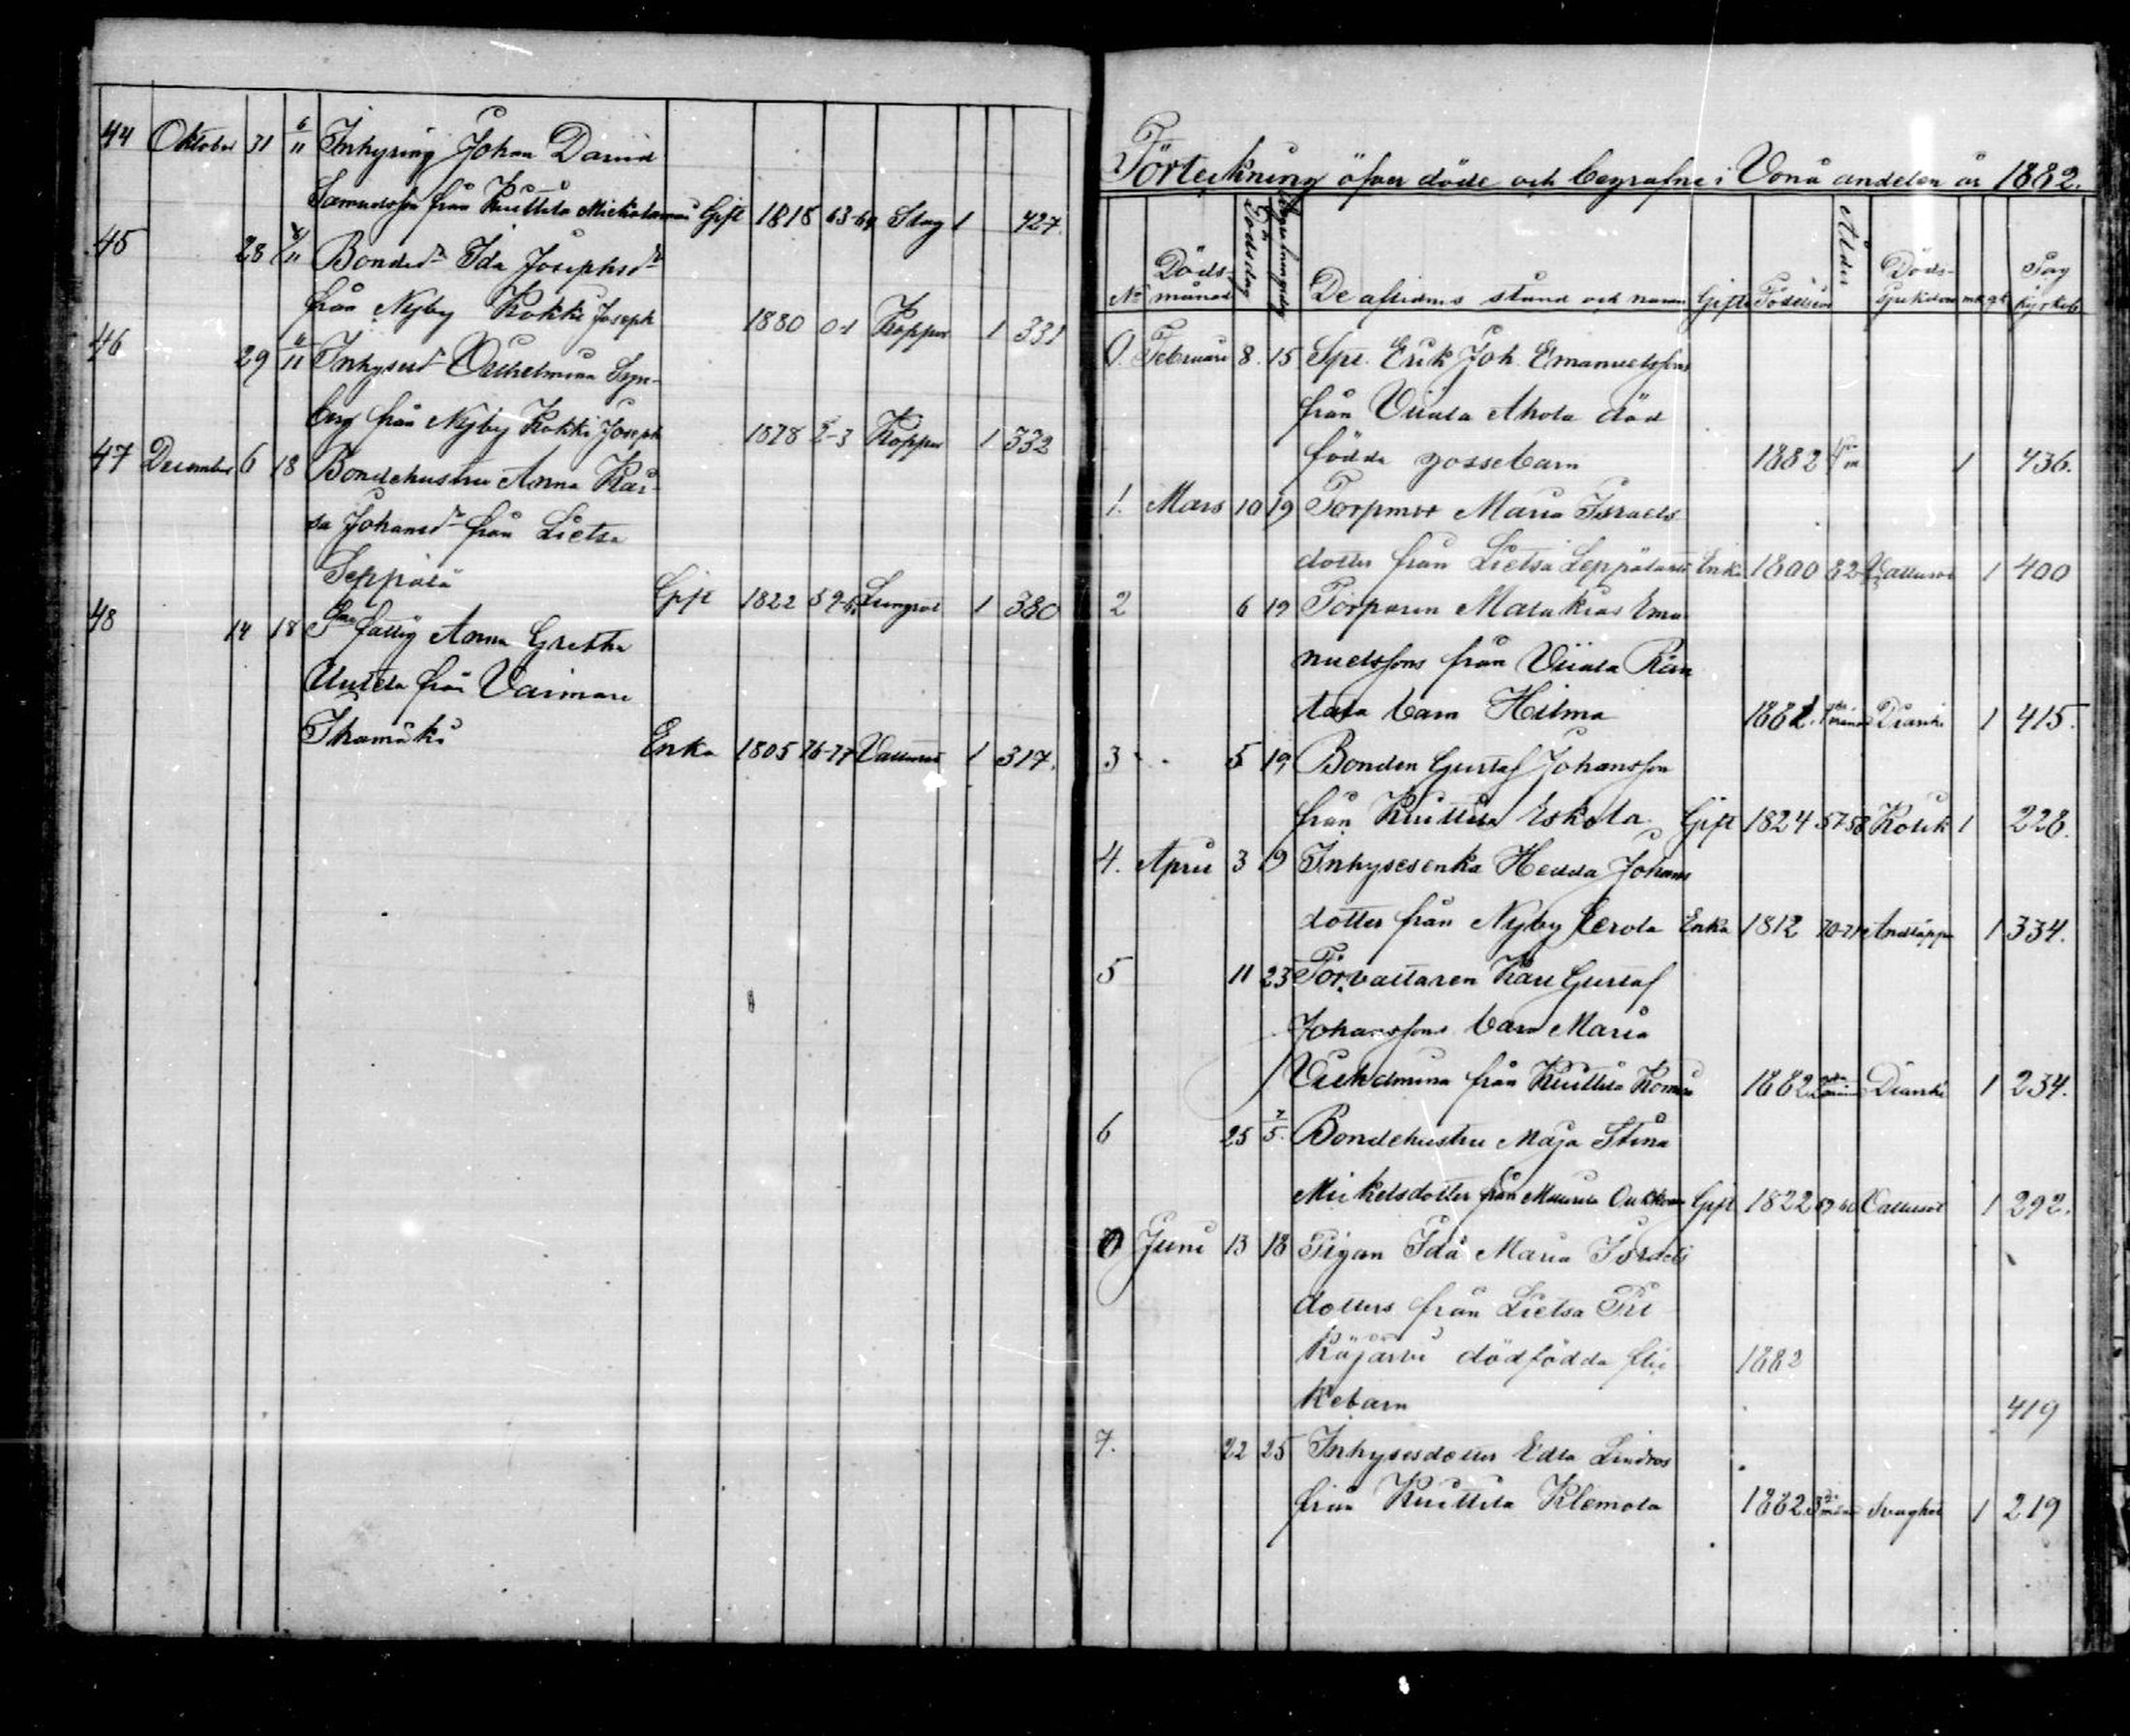 44 Oktober 31 6/11 Inhysing Johan David
Samuelsson från Kuittila Mickolanmäki Gift 1818 63-64 Slag 1 427.
45 28 6/11 Bonded:r Ida Josephsd:r
från Nyby Kokki Joseph 1880 0-1 Koppor 1 331
46 29 6/11 Inhysesd:r Vilhelmina
berg från Nyby Kokki Joseph 1878 2-3 Koppor 1 332
47 December 6 18 Bondehustru Anna Kai-
sa Johansd:r från Lietsa
Seppälä Gift 1822 59-60 Lungsot 1 380
48 14 18 fattig Anna Gretha
från Vaimaro
Ihamäki Enka 1805 76-77 Vattusot 1 317.
Förteckning öfver döde och begrafne i Vånå andelen år 1882.
No Döds-månad Dödsdag Begrafningsdag De aflidnes stånd och namn Gifte Födelseår Ålder Döds-sjukdom mk. qk. Pag. kyrkob.
0. Februari 8. 15 Spr. Erik Joh. Emanuelssons
från Viiala Ahola död
födda gossebarn 1882 1 436.
1. Mars 10 19 Torpmor Maria Israels
dotter från Lietsa Leppälaks Enka 1800 82 Vattusot 1 400
2 6 19 Torparen Malakias Ema
nuelssons från Viiala Ran
tala barn Hilma 1882. 1 månad Diarrhé 1 415.
3 5 19 Bonden Gustaf Johansson
från Kuittila Eskola. Gift 1824 57-58 Kolik 1 228.
4. April 3 9 Inhysesenka Hedda Johans
dotter från Nyby Eerola Enka 1812 70-71 Andtäppa 1 334.
5 11 23 Förvaltaren Karl Gustaf
Johanssons barn Maria
Vilhelmina från Kuittila 1882. Diarrhé 1 234.
6 25 7/5. Bondehustru Maja Stina
Mickelsdotter från Gift 1822 59-60 Vattusot 1 292.
0 Juni 13 18 Pigan Ida Maria Israels
dotters från Lietsa Pit
käjärvi dödfödda flic 1882
kebarn 419
7. 22 25 Inhysesdotter Edla Lindros
från Kuittila Klemola 1882. 3 månad Svaghet 1 219